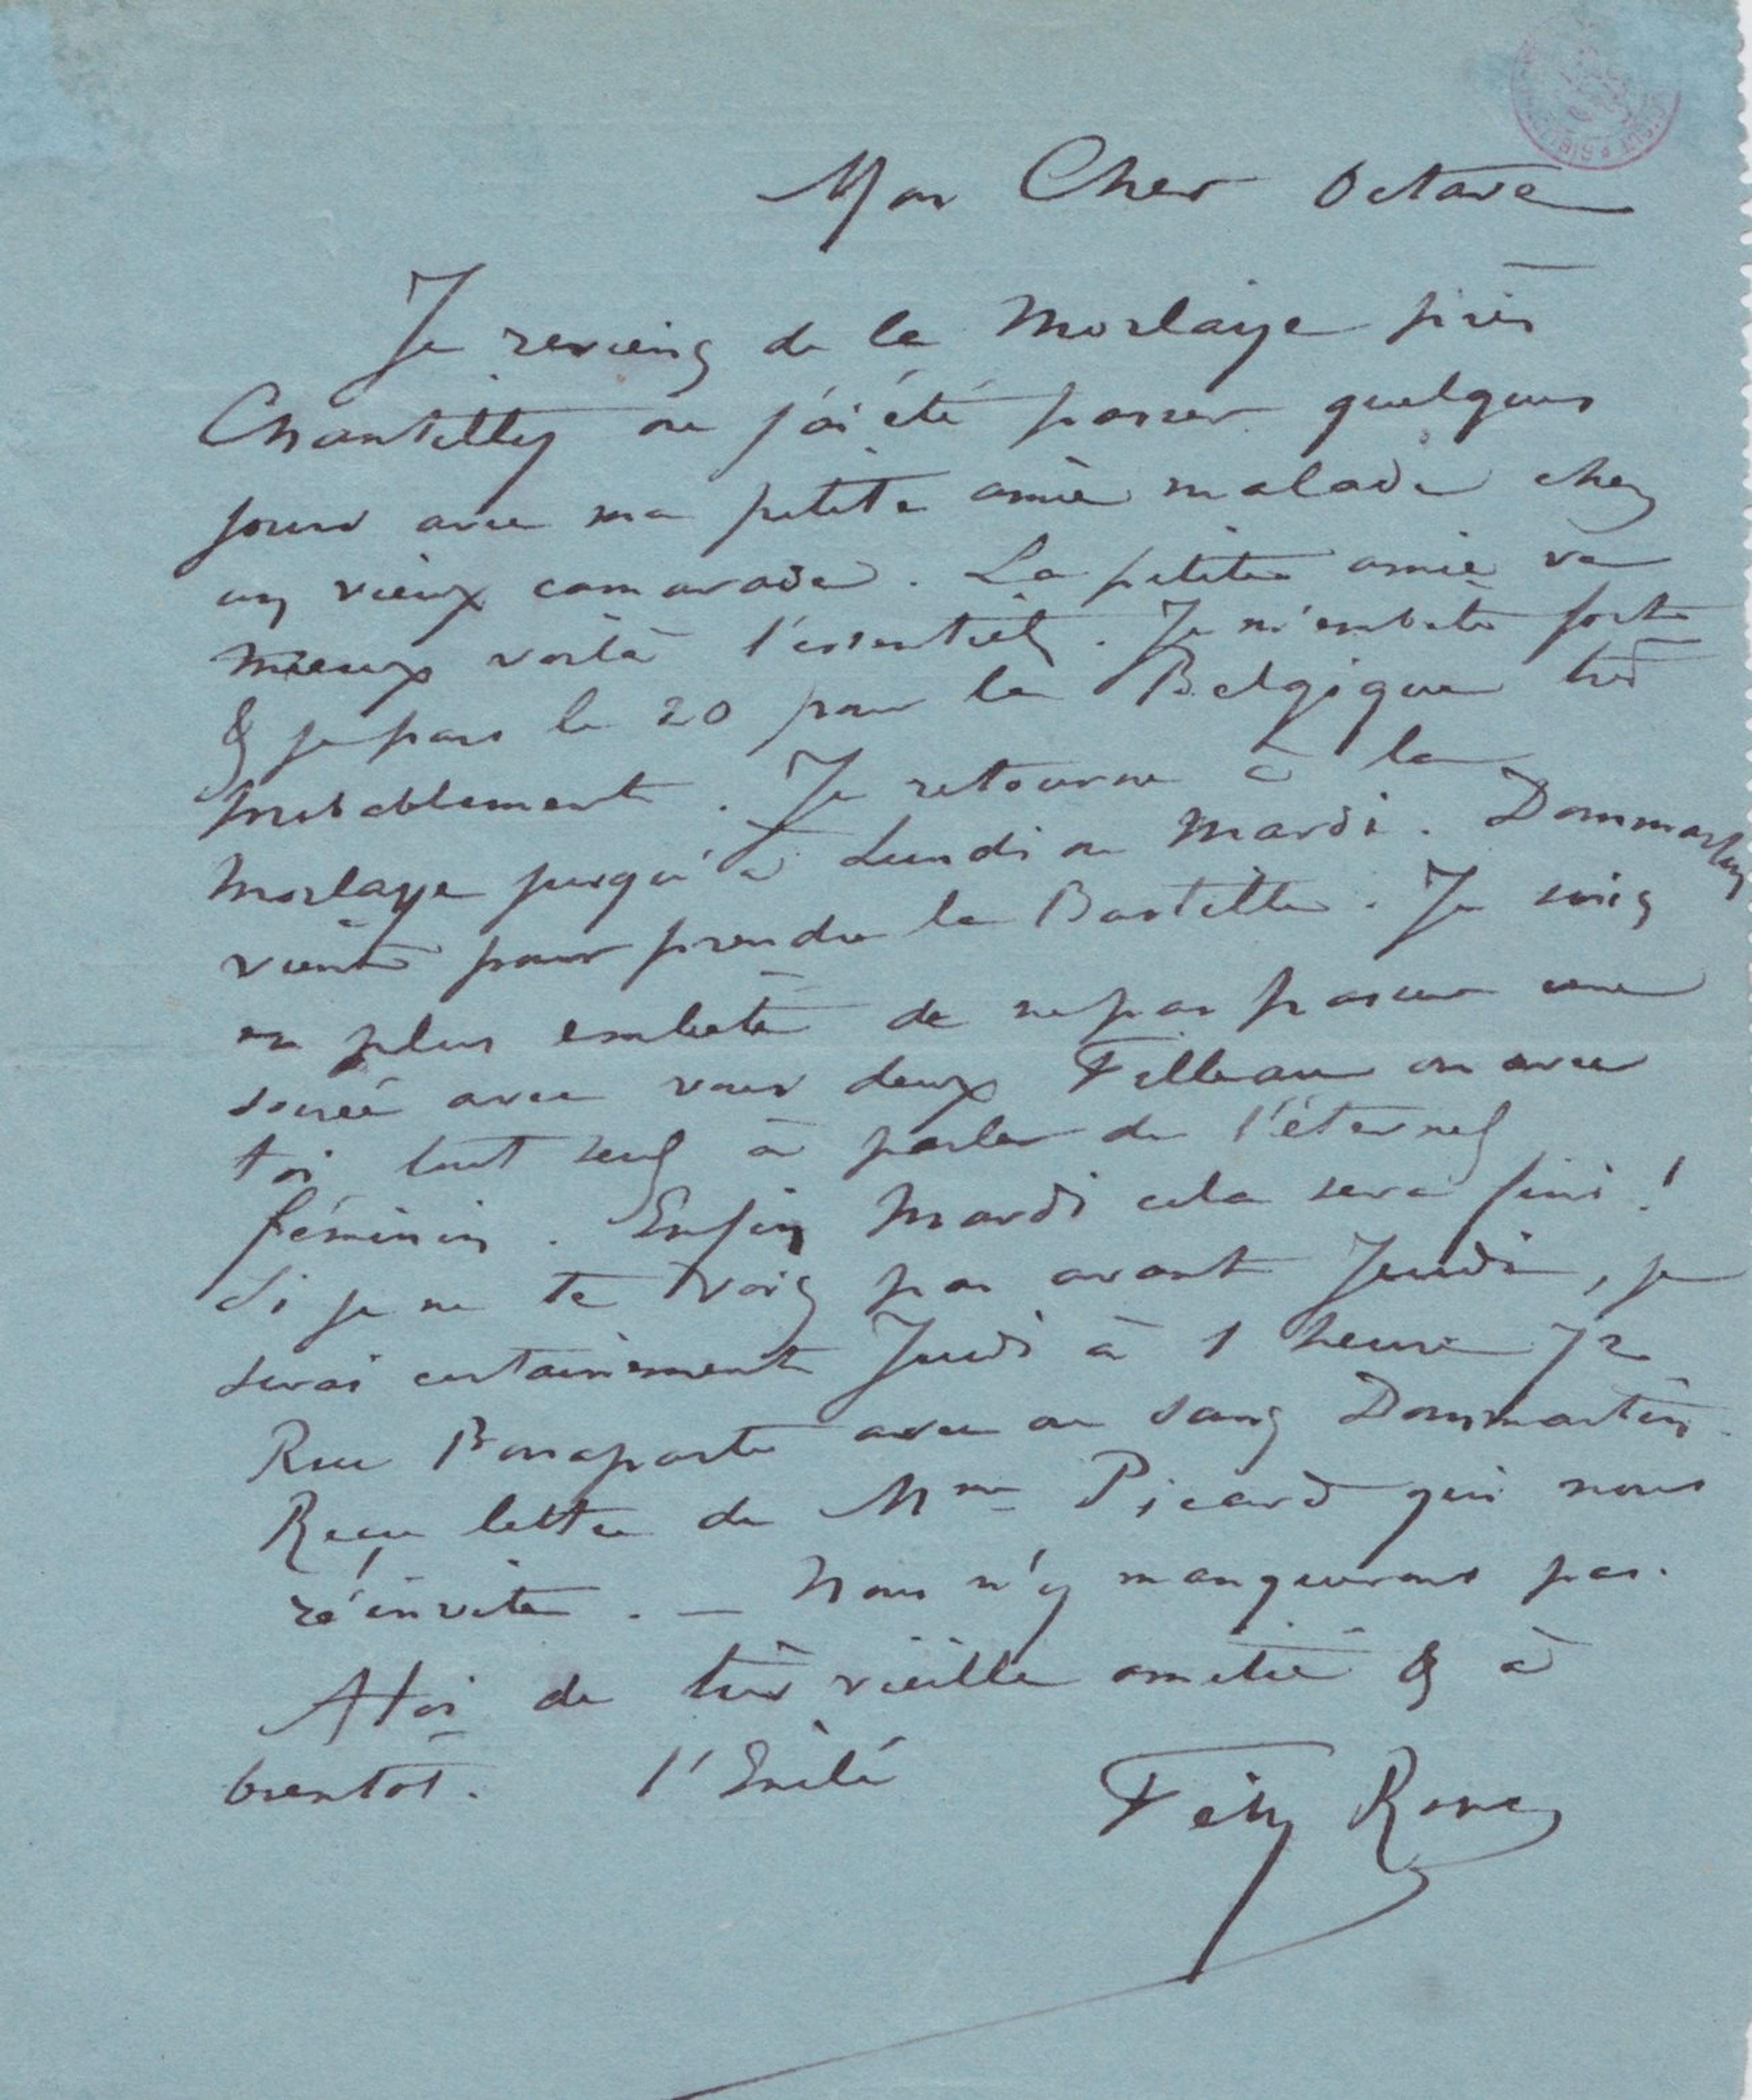 Mon Cher Octave
Je reviens de la Morlaÿe près
Chantilly où j'ai été passer quelques
jours avec ma petite amie malade chez
un vieux camarade. La petite amie va
mieux voilà l'essentiel. Je m'embête forte
& je pars le 20 pour la Belgique très
probablement. Je retourne à la
Morlaye jusqu'à Lundi ou Mardi. Dommartin
vient pour prendre la Bastille. Je suis
en plus embêté de ne pas passer une
soirée avec vous deux Filleau ou avec
toi tout seul à parler de l'éternel
féminin. Enfin Mardi cela sera fini!
Si je ne te vois pas avant Jeudi, je
serai certainement Jeudi à 1 heure 72
Rue Bonaparte avec ou sans Dommartin.
Reçu lettre de Mme Picard qui nous
réinvite. — Nous n'y manquerons pas.
A toi de très vieille amitié & à
bientôt. l'Exilé Félix Rops